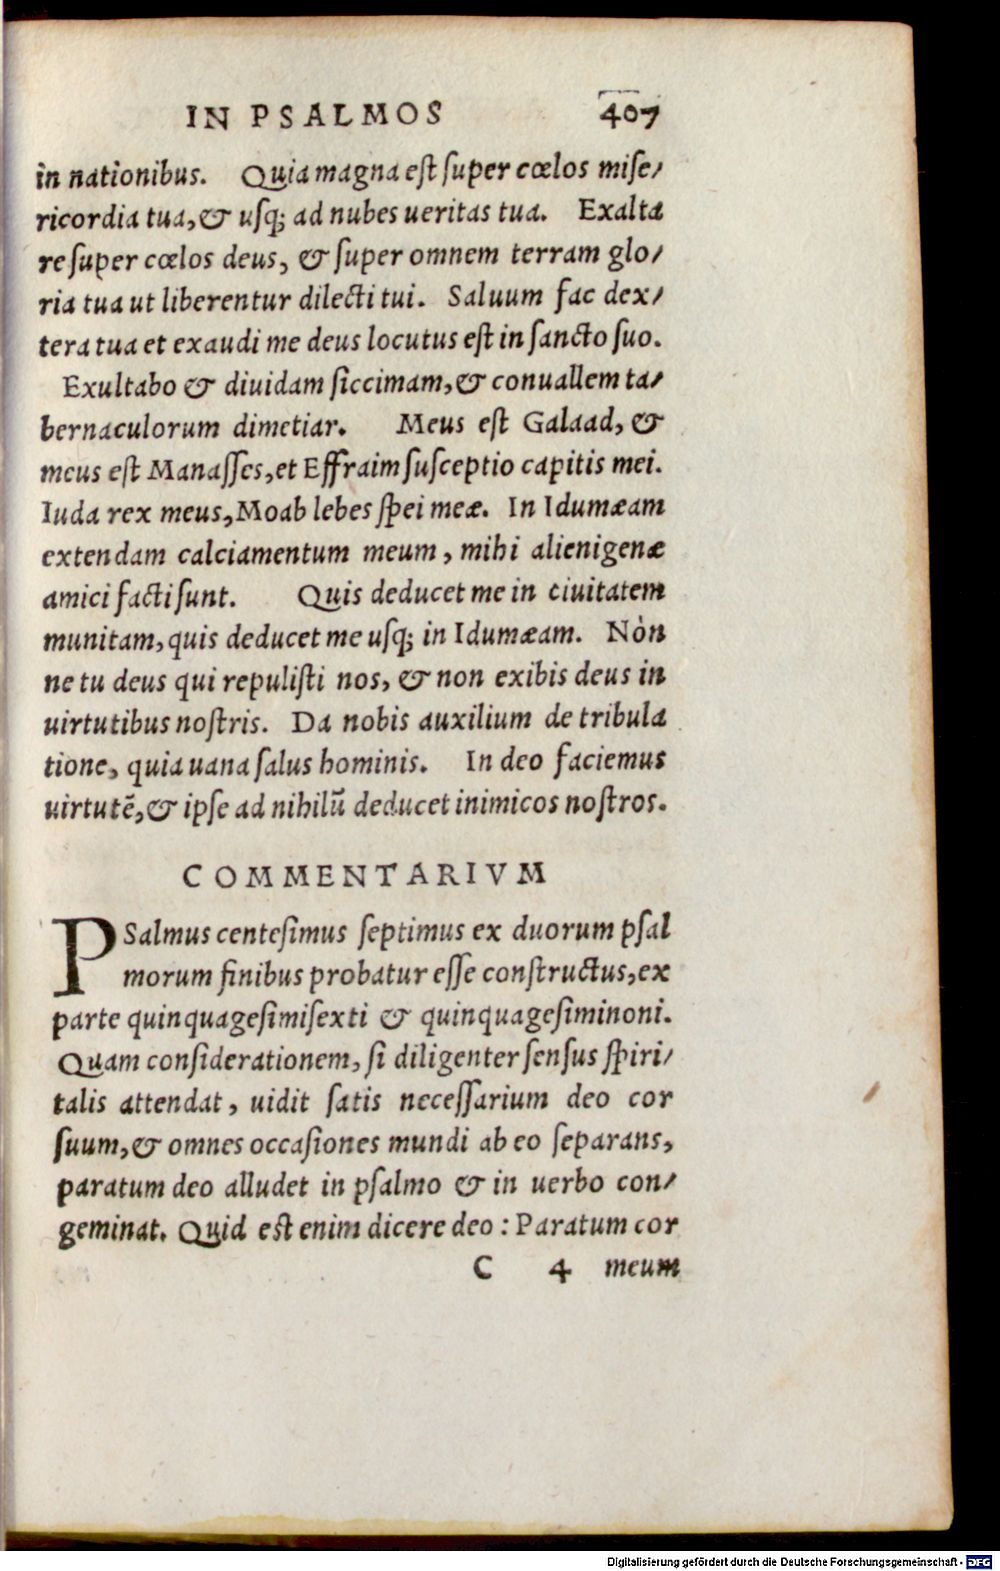 IN PSALMOS 407
in nationibus. Quia magna est super cœlos mise/
ricordia tua, & usq; ad nubes ueritas tua. Exalta
re super cœlos deus, & super omnem terram glo/
ria tua ut liberentur dilecti tui. Saluum fac dex/
tera tua et exaudi me deus locutus est in sancto suo.
Exultabo & diuidam siccimam, & conuallem ta/
bernaculorum dimetiar. Meus est Galaad, &
meus est Manasses, et Effraim susceptio capitis mei.
Iuda rex meus, Moab lebes spei meæ. In Idumæam
extendam calciamentum meum, mihi alienigenæ
amici facti sunt. Quis deducet me in ciuitatem
munitam, quis deducet me usq; in Idumæam. Nòn
ne tu deus qui repulisti nos, & non exibis deus in
uirtutibus nostris. Da nobis auxilium de tribula
tione, quia uana salus hominis. In deo faciemus
uirtutē, & ipse ad nihilū deducet inimicos nostros.
COMMENTARIVM
PSalmus centesimus septimus ex duorum psal
morum finibus probatur esse constructus, ex
parte quinquagesimisexti & quinquagesiminoni.
Quam considerationem, si diligenter sensus spiri/
talis attendat, uidit satis necessarium deo cor
suum, & omnes occasiones mundi ab eo separans,
paratum deo alludet in psalmo & in uerbo con/
geminat. Quid est enim dicere deo : Paratum cor
C 4 meum
Digitalisierung gefördert durch die Deutsche Forschungsgemeinschaft - DFG